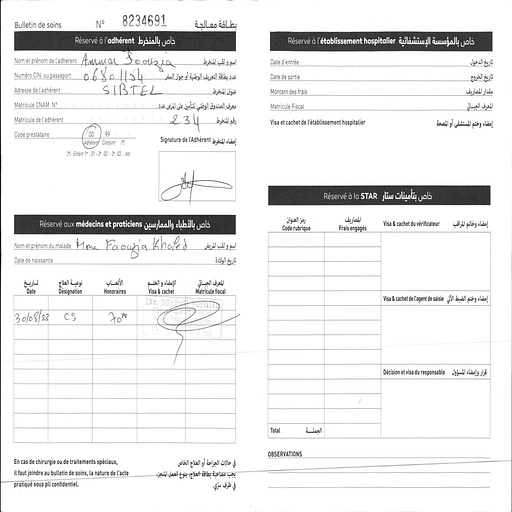 Bulletin de soins N° 8234691 بطاقة معالجة
Réservé à l'adhérent خاص بالمنخرط
Nom et prénom de l'adhérent Ammar Faouzia اسم و لقب المنخرط
Numéro CIN ou passeport 06801134 عدد بطاقة التعريف الوطنية أو جواز السفر
Adresse de l'adhérent SIBTEL عنوان المنخرط
Matricule CNAM N° معرف الصندوق الوطني للتأمين على المرض عدد
Matricule de l'adhérent 234 رقم المنخرط
Code prestataire 00 99 Signature de l'Adhérent إمضاء المنخرط
Adhérent Conjoint (*)
(*) Enfant 1er : 01 - 2 : 02 - 3 : 03 ... etc
Réservé aux médecins et praticiens خاص بالأطباء والممارسين
Nom et prénom du malade Mme Faouzia Khaled اسم و لقب المريض
Date de naissance تاريخ الولادة
تاريخ نوعية العلاج الأتعاب الإمضاء و الختم المعرف الجبائي
Date Désignation Honoraires Visa & cachet Matricule fiscal
30/05/23 Cs 70
En cas de chirurgie ou de traitements spéciaux,
il faut joindre au bulletin de soins, la nature de l'acte
pratiqué sous pli confidentiel.
في حالات الجراحة أو العلاج الخاص
يجب مصاحبة بطاقة العلاج، بنوع العمل المنجز،
في ظرف سري.
Réservé à l'établissement hospitalier خاص بالمؤسسة الإستشفائية
Date d'entrée تاريخ الدخول
Date de sortie تاريخ الخروج
Montant des frais مقدار المصاريف
Matricule Fiscal المعرف الجبائي
Visa et cachet de l'établissement hospitalier إمضاء وختم المستشفى أو المصحة
Réservé à la STAR خاص بتأمينات ستار
رمز العنوان المصاريف Visa & cachet du vérificateur إمضاء وخاتم المراقب
Code rubrique Frais engagés
Visa & cachet de l'agent de saisie إمضاء وختم الضبط الآلي
Décision et visa du responsable قرار وإمضاء المسؤول
Total الجملة
OBSERVATIONS